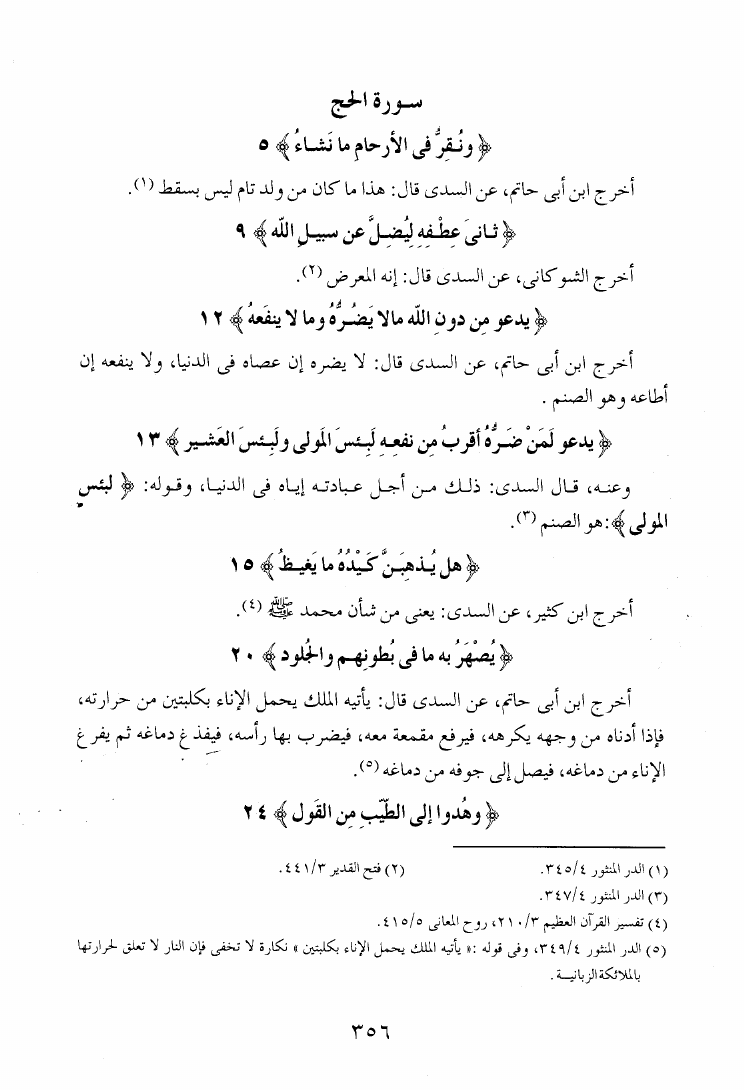 سورة الحج
﴿ ونُقِرُّ فى الأرحامِ ما نَشاءُ ﴾ ٥
أخرج ابن أبى حاتم، عن السدى قال: هذا ما كان من ولد تام ليس بسقط (١).
﴿ ثانىَ عِطْفِهِ لِيُضِلَّ عن سبيلِ الله ﴾ ٩
أخرج الشوكانى، عن السدى قال: إنه المعرض (٢).
﴿ يدعو مِن دونِ الله مالا يَضُرُّهُ وما لا ينفَعهُ ﴾ ١٢
أخرج ابن أبى حاتم، عن السدى قال: لا يضره إن عصاه فى الدنيا، ولا ينفعه إن
أطاعه وهو الصنم .
﴿ يدعو لَمَنْ ضَرُّهُ أقربُ مِن نفعِهِ لَبِئسَ المَولى ولَبِئسَ العَشير ﴾ ١٣
وعنه، قال السدى: ذلك من أجل عبادته إياه فى الدنيا، وقوله: ﴿ لبئس
المولى ﴾: هو الصنم (٣).
﴿ هل يُذهِبَنَّ كَيْدُهُ ما يَغيظُ ﴾ ١٥
أخرج ابن كثير، عن السدى: يعنى من شأن محمد ﷺ (٤).
﴿ يُصْهَرُ به ما فى بُطونِهم والجُلود ﴾ ٢٠
أخرج ابن أبى حاتم، عن السدى قال: يأتيه الملك يحمل الإناء بكلبتين من حرارته،
فإذا أدناه من وجهه يكرهه، فيرفع مقمعة معه، فيضرب بها رأسه، فيفذغ دماغه ثم يفرغ
الإناء من دماغه، فيصل إلى جوفه من دماغه (٥).
﴿ وهُدوا إلى الطيّبِ مِن القَول ﴾ ٢٤
(١) الدر المنثور ٣٤٥/٤. (٢) فتح القدير ٤٤١/٣.
(٣) الدر المنثور ٣٤٧/٤.
(٤) تفسير القرآن العظيم ٢١٠/٣، روح المعانى ٤١٥/٥.
(٥) الدر المنثور ٣٤٩/٤، وفى قوله :« يأتيه الملك يحمل الإناء بكلبتين » نكارة لا تخفى فإن النار لا تعلق لحرارتها
بالملائكة الزبانية .
٣٥٦